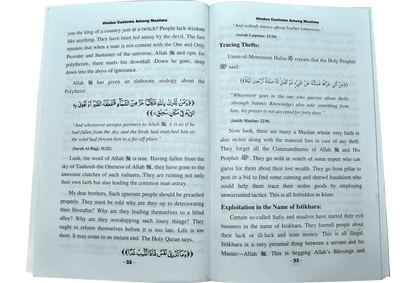 Hindus Customs Among Muslims
you the king of a country just at a twitch? People lack wisdom
like anything. They have been led astray by the devil. The fact
remains that when a man is not content with the One and Only
Provider and Sustainer of the universe, Allah ﷻ and opts for
polytheism, there starts his downfall. Down he goes, deep
down into the abyss of ignorance.
Allah ﷻ has given an elaborate analogy about the
Polytheist:
"And whoever assigns partners to Allah ﷻ, it is as if he
had fallen from the sky, and the birds had snatched him or
the wind had thrown him to a far off place."
(Surah Al-Hajj: 31/22)
Look, the word of Allah ﷻ is true. Having fallen from the
sky of Tauheed-the Oneness of Allah ﷻ, they have gone to the
awesome clutches of such vultures. They are ruining not only
their own faith but also leading the common man astray.
My dear brothers, Such ignorant people should be preached
properly. They must be told why are they up to deteriorating
their Hereafter? Why are they leading themselves to a blind
alley? Why are they worshipping such lousy things? They
ought to reform themselves before it is too late. Life is too
short. It may come to an instant end. The Holy Quran says,
- 32 -
Hindus Customs Among Muslims
"And nobody knows about his/her tomorrow."
(Surah Luqman: 31/34)
Tracing Thefts:
Umm-ul-Momineen Hafsa reports that the Holy Prophet
ﷺ said:
"Whosoever goes to the one who guesses about thefts
(through Satanic Knowledge) and asks something from
him, his prayer is not accepted for forty days."
(Sahih Muslim: 2230)
Now look, there are many a Muslim whose very faith is
also stolen along with the material loss in case of any theft.
They forget all the Commandments of Allah ﷻ and His
Prophet ﷺ. They go wild in search of some expert who can
guess for them about their lost wealth. They go from pillar to
post in a bid to find some cunning and shrewd fraudulent who
could help them trace their stolen goods by employing
unwarranted tactics. This is all forbidden in Islam.
Exploitation in the Name of Istikhara:
Certain so-called Sufis and maulvis have started their evil
business in the name of Istikhara. They foretell people about
their luck or ill-luck and mint money. This is all illegal.
Istikhara is a very personal thing between a servant and his
Master—Allah ﷻ. This is begging Allah's Blessings and
- 33 -